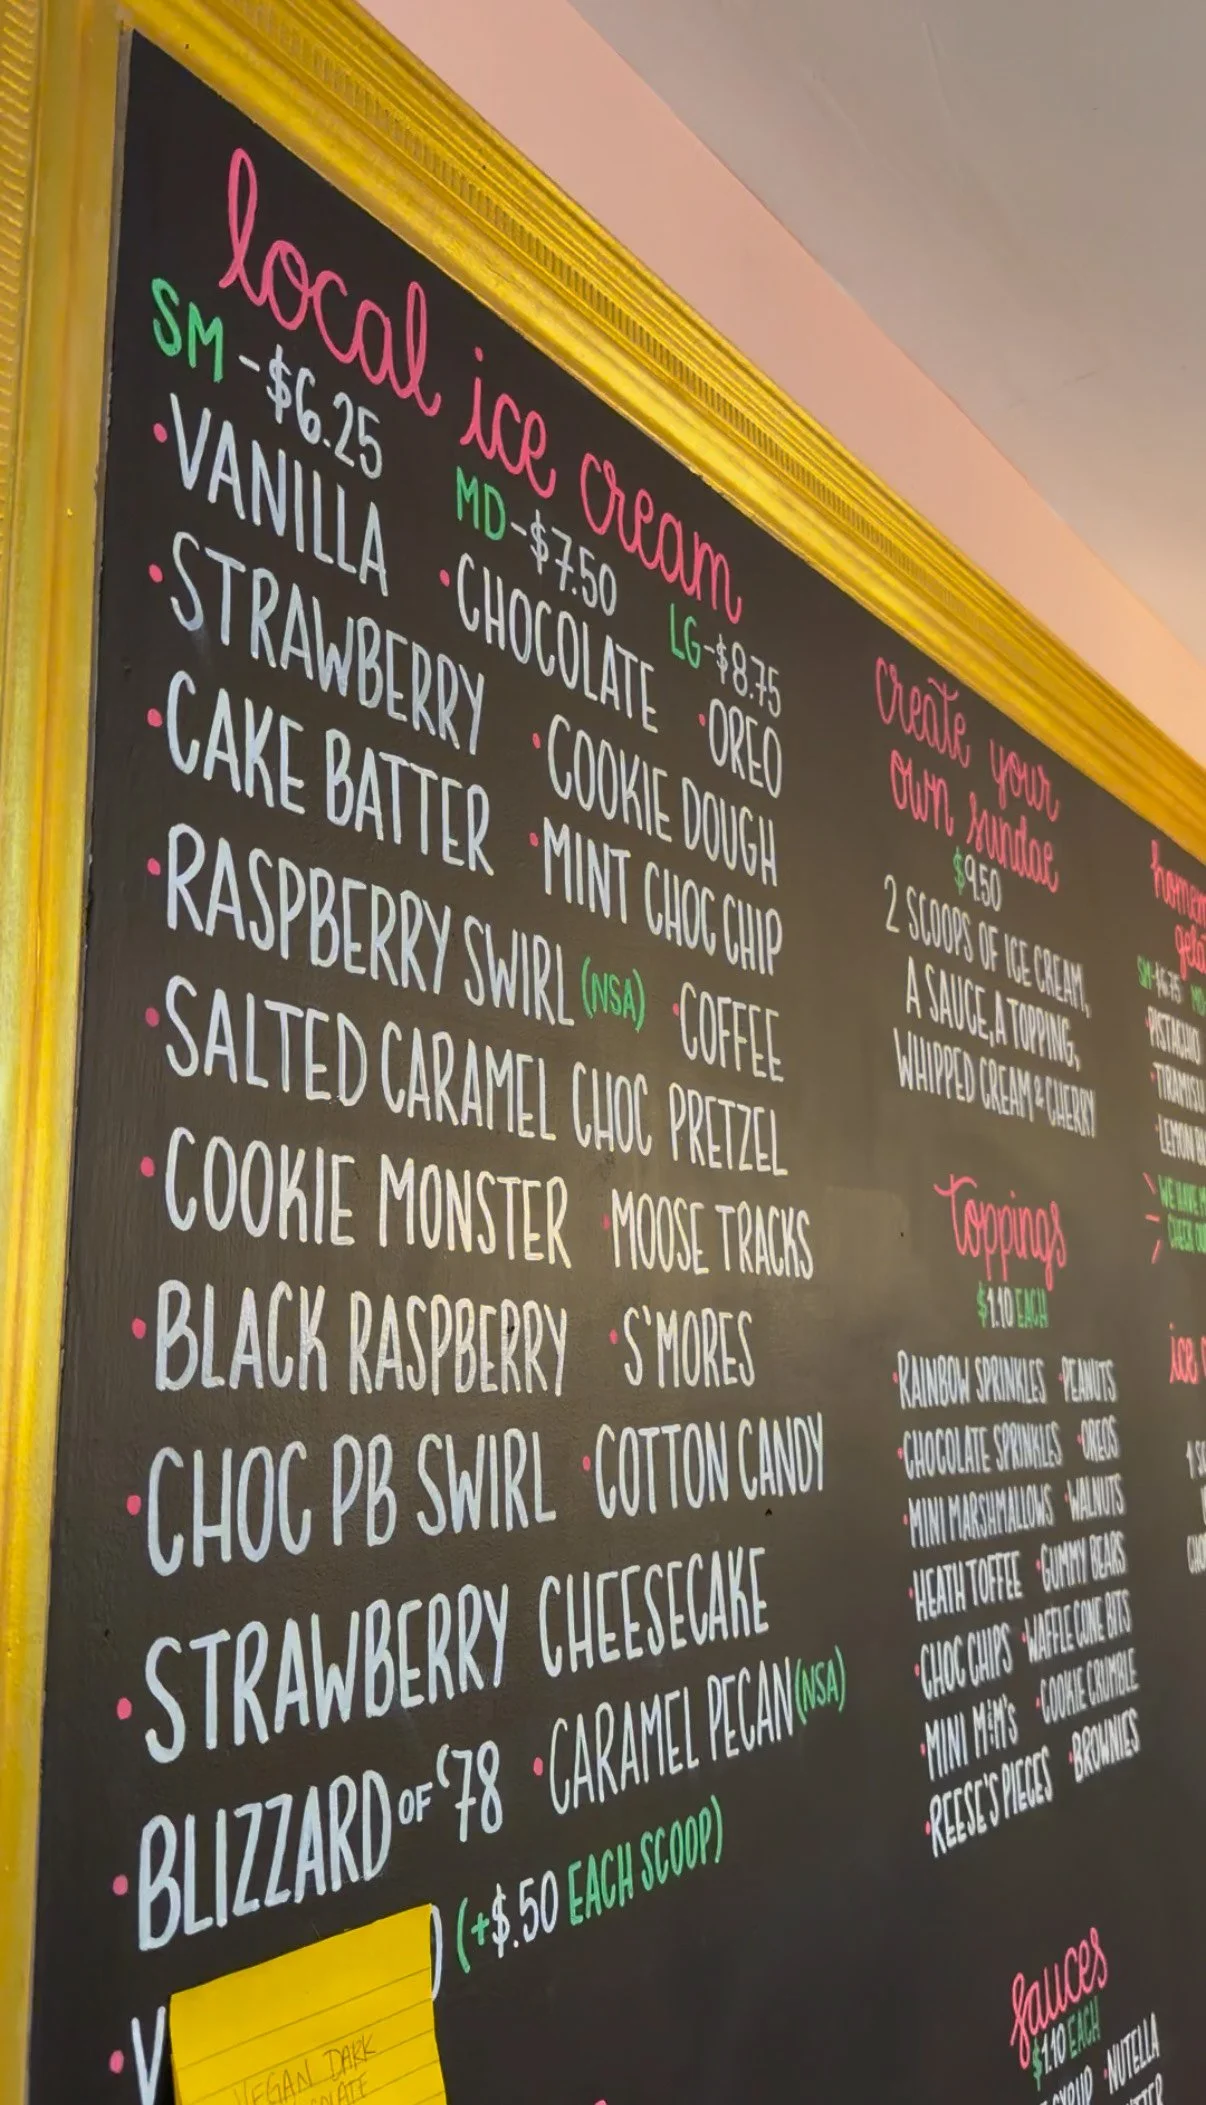 local ice cream
SM-$6.25 MD-$7.50 LG-$8.75
•VANILLA •CHOCOLATE •OREO
•STRAWBERRY •COOKIE DOUGH
•CAKE BATTER •MINT CHOC CHIP
•RASPBERRY SWIRL (NSA) •COFFEE
•SALTED CARAMEL CHOC PRETZEL
•COOKIE MONSTER •MOOSE TRACKS
•BLACK RASPBERRY •S'MORES
•CHOC PB SWIRL •COTTON CANDY
•STRAWBERRY CHEESECAKE
•BLIZZARD OF '78 •CARAMEL PECAN (NSA)
(+$.50 EACH SCOOP)
VEGAN DARK
create your
own sundae
$9.50
2 SCOOPS OF ICE CREAM,
A SAUCE, A TOPPING,
WHIPPED CREAM & CHERRY
toppings
$1.10 EACH
•RAINBOW SPRINKLES •PEANUTS
•CHOCOLATE SPRINKLES •OREOS
•MINI MARSHMALLOWS •WALNUTS
•HEATH TOFFEE •GUMMY BEARS
•CHOC CHIPS •WAFFLE CONE BITS
•MINI M&M'S •COOKIE CRUMBLE
•REESE'S PIECES •BROWNIES
sauces
$1.10 EACH
•NUTELLA
SM-$6.75
•PISTACHIO
•TIRAMISU
•LEMON
WE HAVE
CHECK
ice